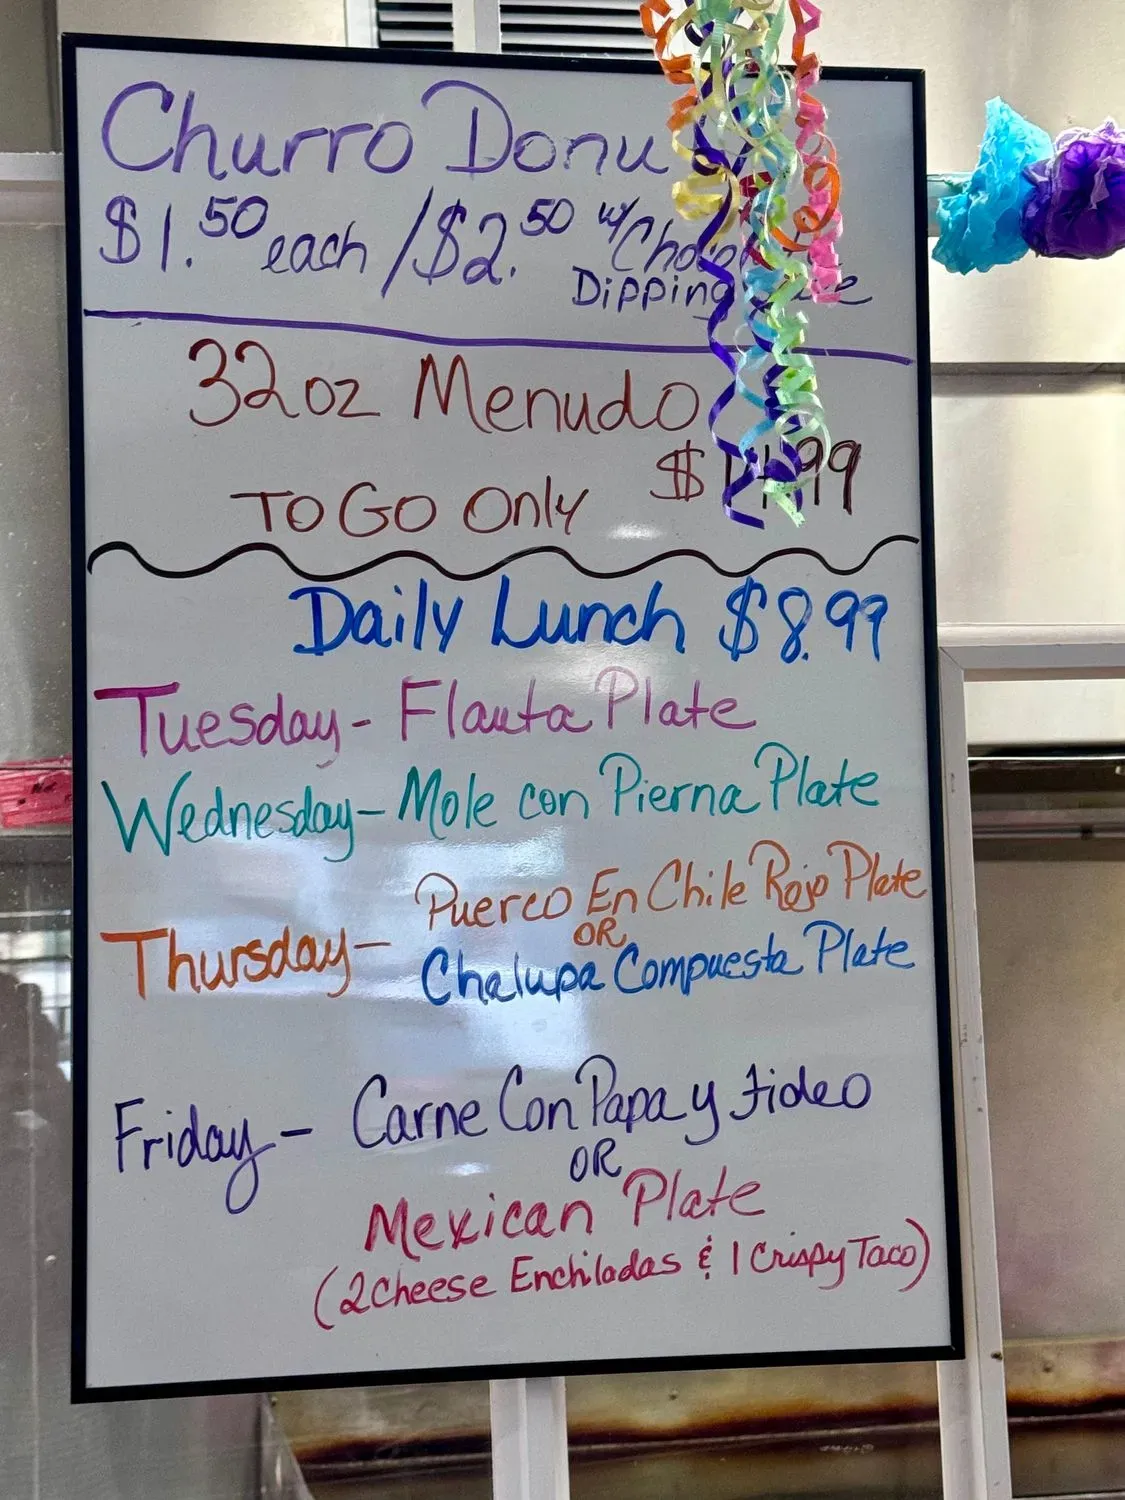 Churro Donu
$1.50 each / $2.50 w/
Dipping
32oz Menudo
TO GO Only $14.99
Daily Lunch $8.99
Tuesday - Flauta Plate
Wednesday - Mole con Pierna Plate
Thursday - Puerco En Chile Rojo Plate
OR
Chalupa Compuesta Plate
Friday - Carne Con Papa y fideo
OR
Mexican Plate
(2 Cheese Enchiladas & 1 Crispy Taco)